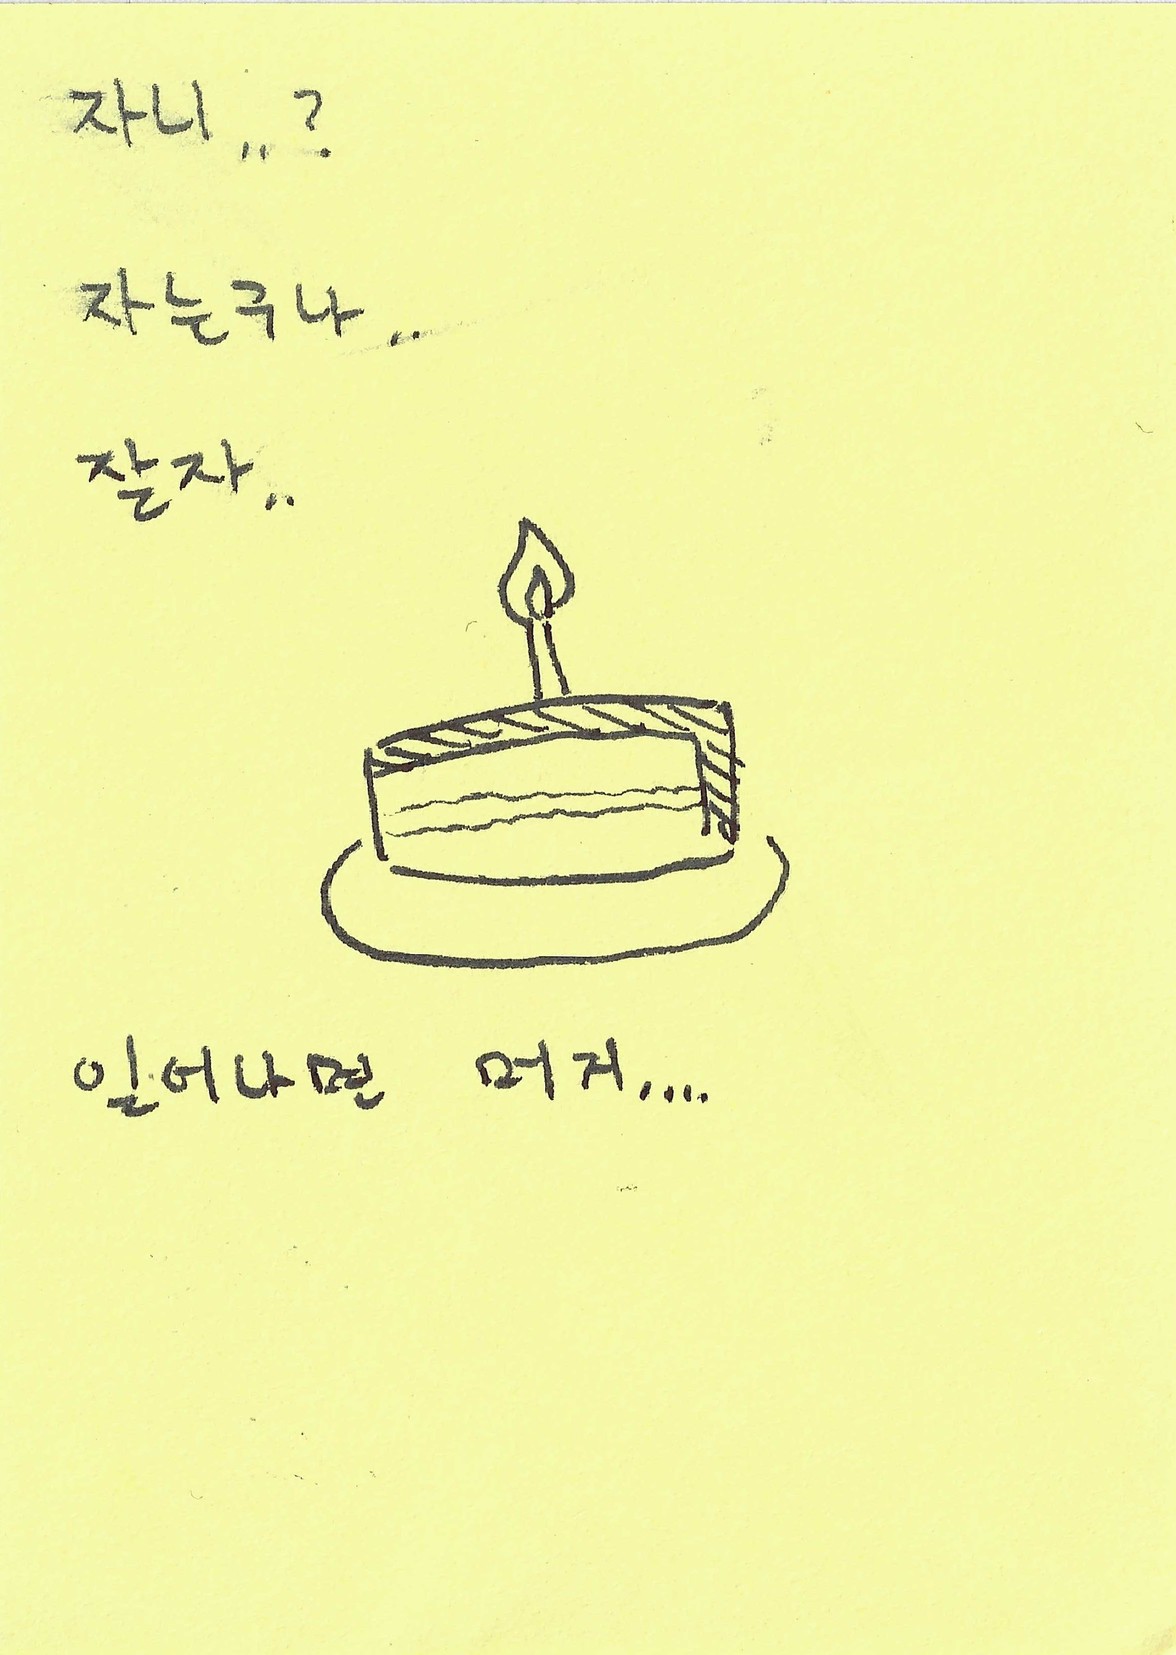 자니..?
자는구나..
잘자..
일어나면 머거....